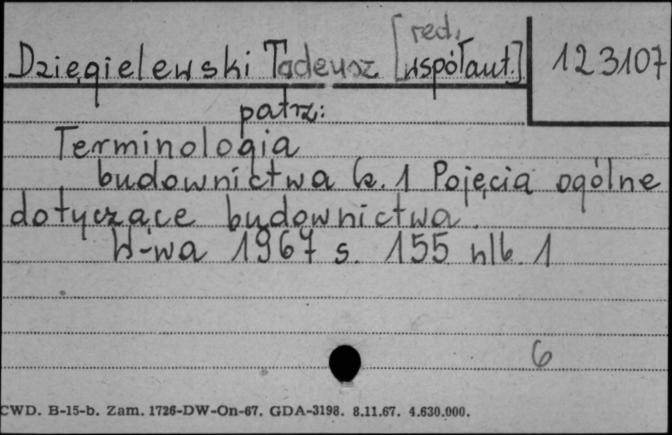 [red.
Dzięgielewski Tadeusz współaut.]
123107
patrz:
Terminologia
budownictwa Cz. 1 Pojęcia ogólne
dotyczące budownictwa.
W-wa 1967 s. 155 nlb. 1
6
CWD. B-15-b. Zam. 1726-DW-On-67. GDA-3198. 8.11.67. 4.630.000.